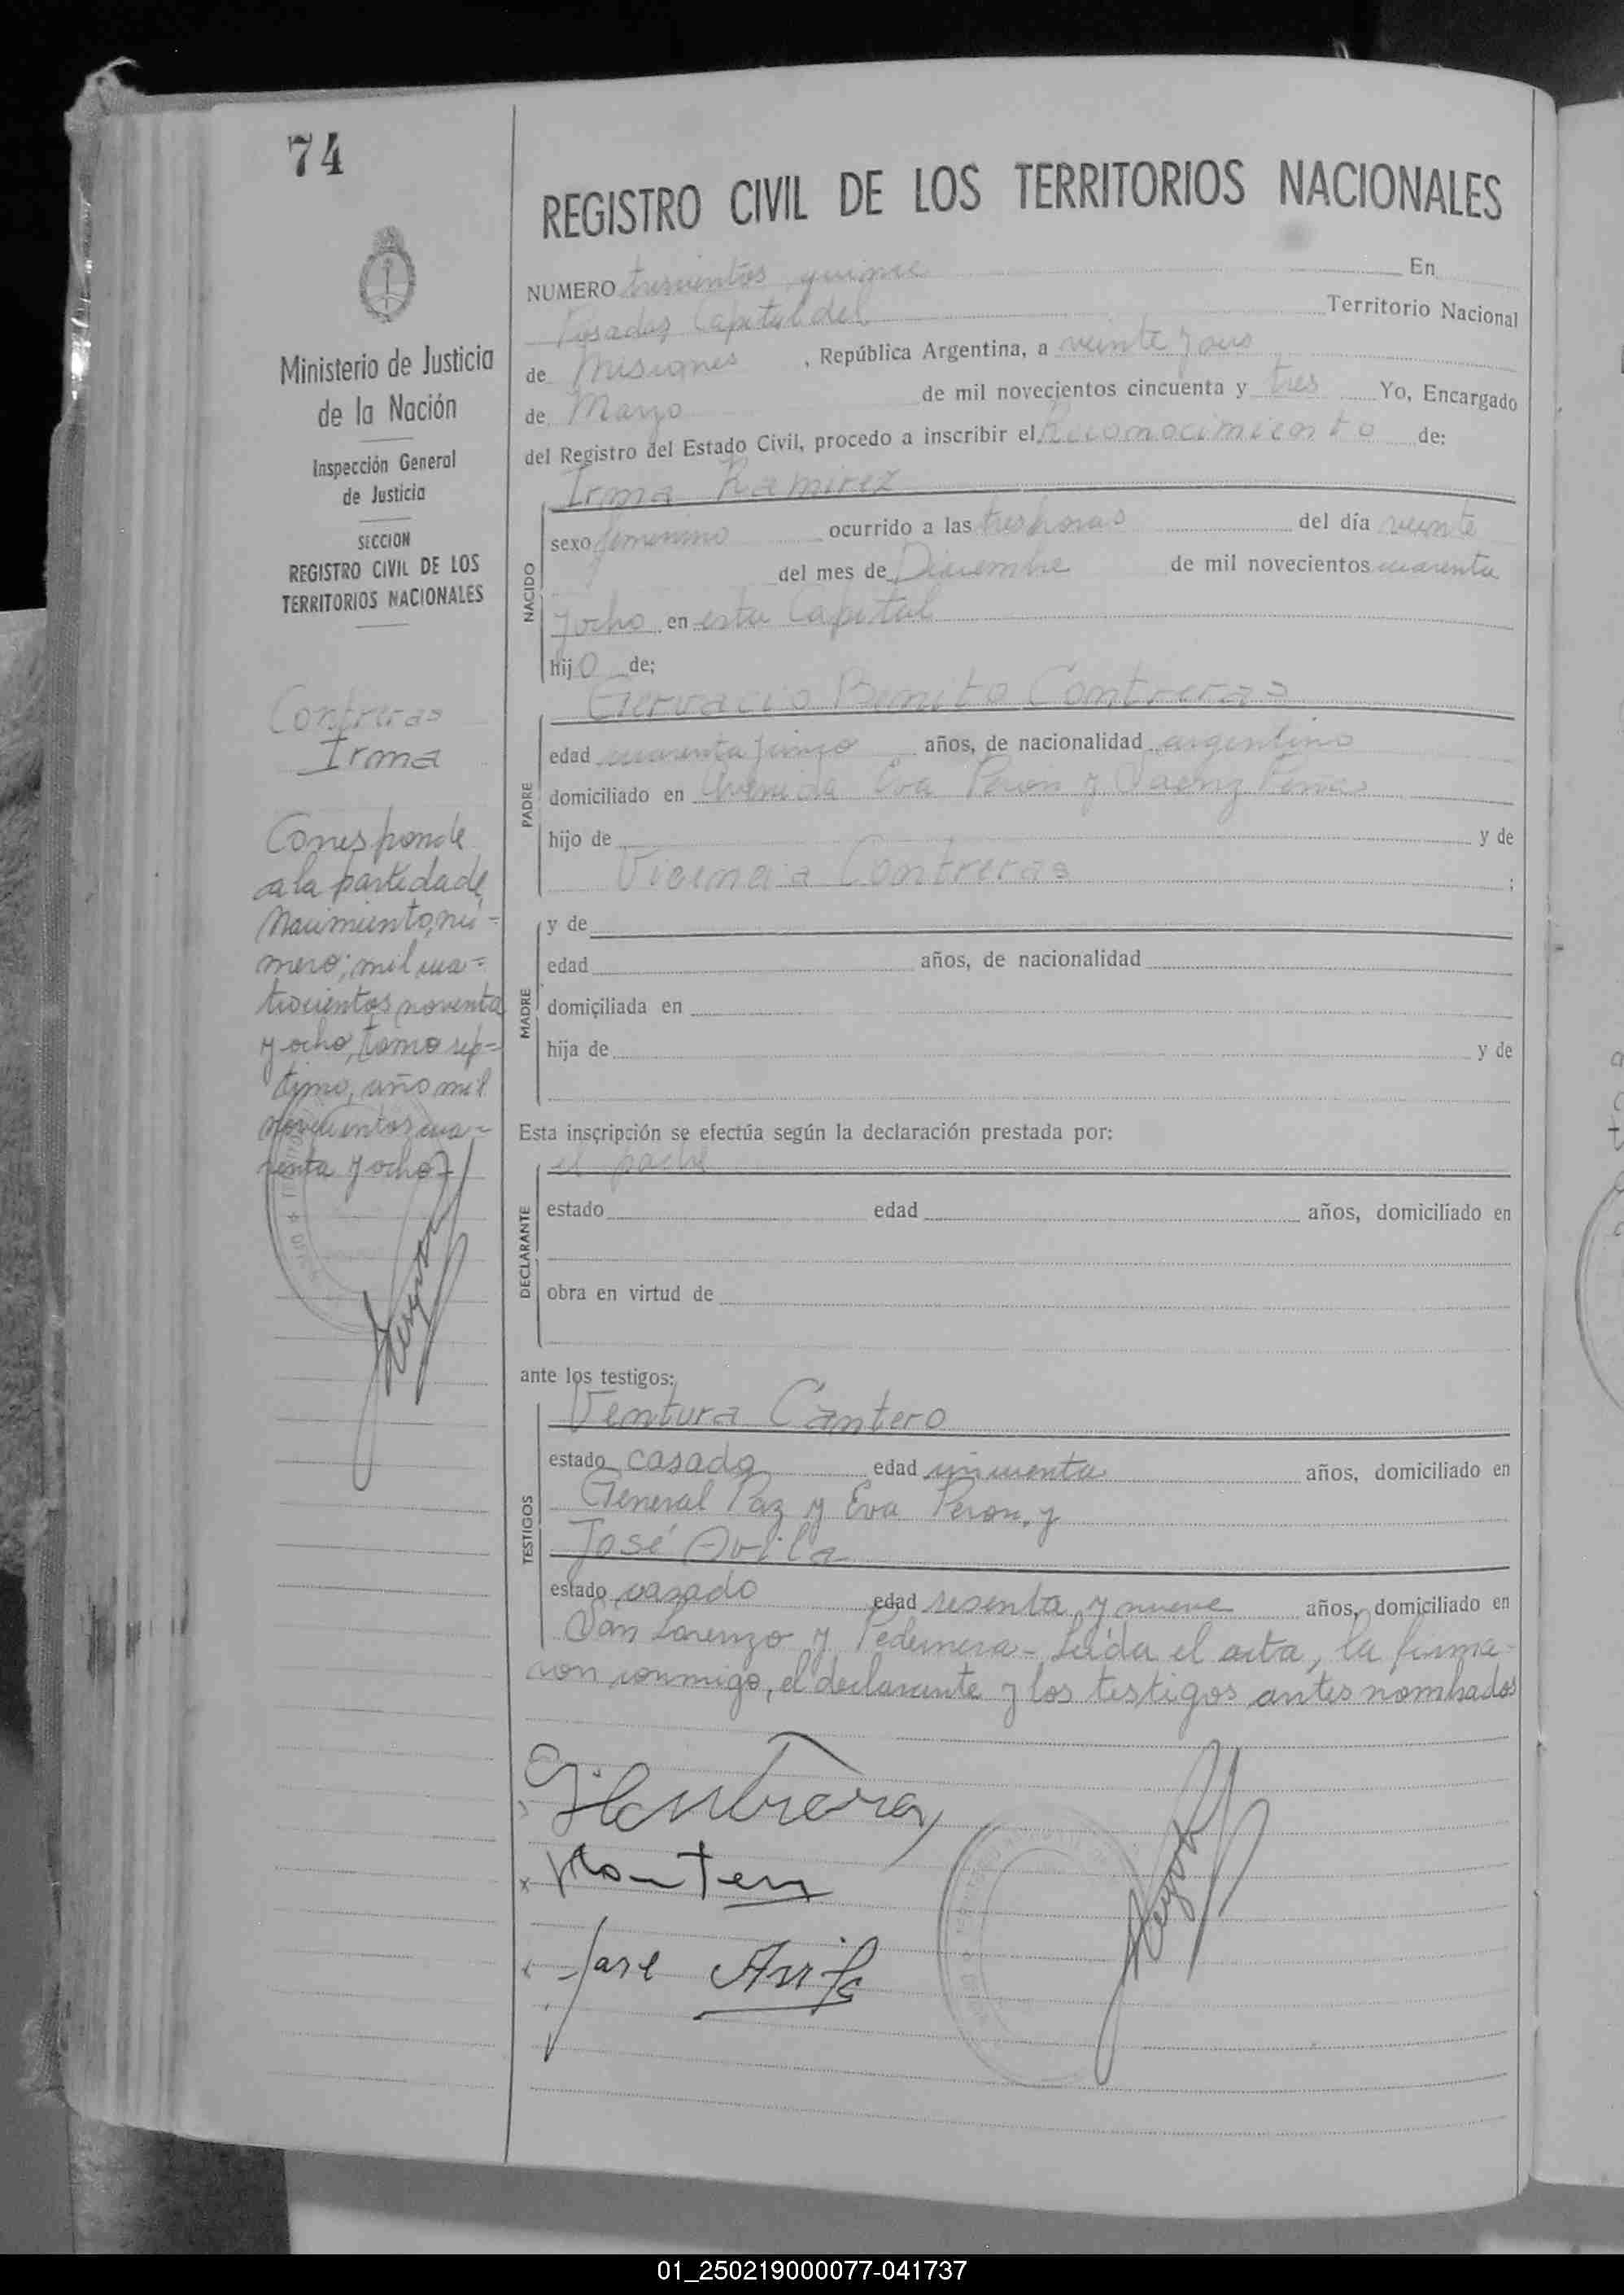 74
REGISTRO CIVIL DE LOS TERRITORIOS NACIONALES
NUMERO trescientos quince En
Posadas Capital del Territorio Nacional
de Misiones, República Argentina, a veinte y seis
de Marzo de mil novecientos cincuenta y tres Yo, Encargado
del Registro del Estado Civil, procedo a inscribir el Reconocimiento de:
Irma Ramirez
NACIDO
sexo femenino ocurrido a las tres horas del día veinte
del mes de Diciembre de mil novecientos cuarenta
y ocho en esta Capital
hijo de:
Gervacio Benito Contreras
PADRE
edad cuarenta y cinco años, de nacionalidad argentino
domiciliado en Avenida Eva Peron y Saenz Peña
hijo de y de
Vicencia Contreras ;
MADRE
y de
edad años, de nacionalidad
domiciliada en
hija de y de
Esta inscripción se efectúa según la declaración prestada por:
el padre
DECLARANTE
estado edad años, domiciliado en
obra en virtud de
ante los testigos:
Ventura Cantero
TESTIGOS
estado casado edad cincuenta años, domiciliado en
General Paz y Eva Peron, y
José Avila
estado casado edad sesenta y nueve años, domiciliado en
San Lorenzo y Pedernera - Leída el acta, la firma-
ron conmigo, el declarante y los testigos antes nombrados
Contreras
Jose Avila
Ministerio de Justicia
de la Nación
Inspección General
de Justicia
SECCION
REGISTRO CIVIL DE LOS
TERRITORIOS NACIONALES
Contreras
Irma
Corresponde
a la partida de
Nacimiento, nú-
mero; mil cua-
trocientos noventa
y ocho, tomo sép-
timo, año mil
novecientos cua-
renta y ocho
01_250219000077-041737